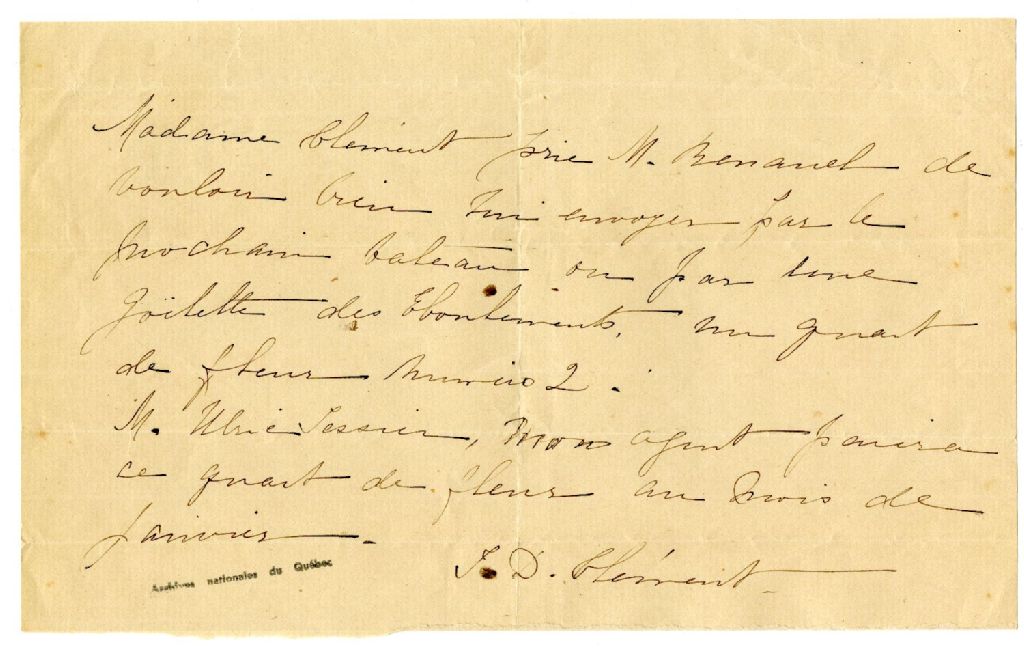 Madame Clément prie M. Renauel de
vouloir bien lui envoyer par le
prochain bateau ou par une
goëlette des Eboulements, un quart
de fleur numéro 2.
M. Ulric Tessier, mon agent paiera
ce quart de fleur au mois de
janvier.
J. D. Clément
Archives nationales du Québec